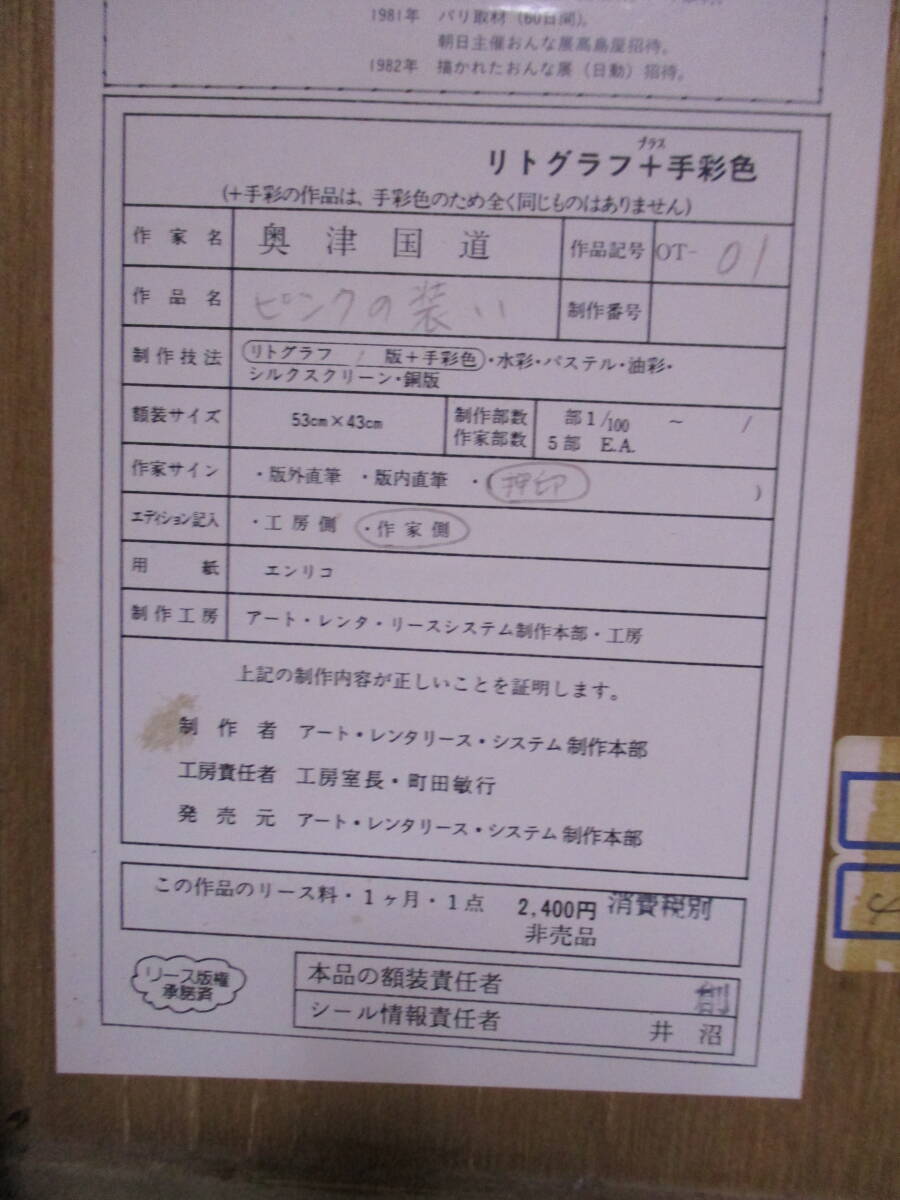 1981年 パリ取材(60日間)。
朝日主催おんな展高島屋招待。
1982年 描かれたおんな展(日動)招待。
プラス
リトグラフ+手彩色
(+手彩の作品は、手彩色のため全く同じものはありません)
作家名 奥津国道 作品記号 OT- 01
作品名 ピンクの装い 制作番号
制作技法 リトグラフ 1 版+手彩色・水彩・パステル・油彩・
シルクスクリーン・銅版
額装サイズ 53cm×43cm 制作部数 部1/100 ~ /
作家部数 5部 E.A.
作家サイン ・版外直筆 ・版内直筆 ・(押印 )
エディション記入 ・工房側 ・作家側
用紙 エンリコ
制作工房 アート・レンタ・リースシステム制作本部・工房
上記の制作内容が正しいことを証明します。
制作者 アート・レンタリース・システム制作本部
工房責任者 工房室長・町田敏行
発売元 アート・レンタリース・システム制作本部
この作品のリース料・1ヶ月・1点 2,400円 消費税別
非売品
リース版権
承諾済
本品の額装責任者 創
シール情報責任者 井沼